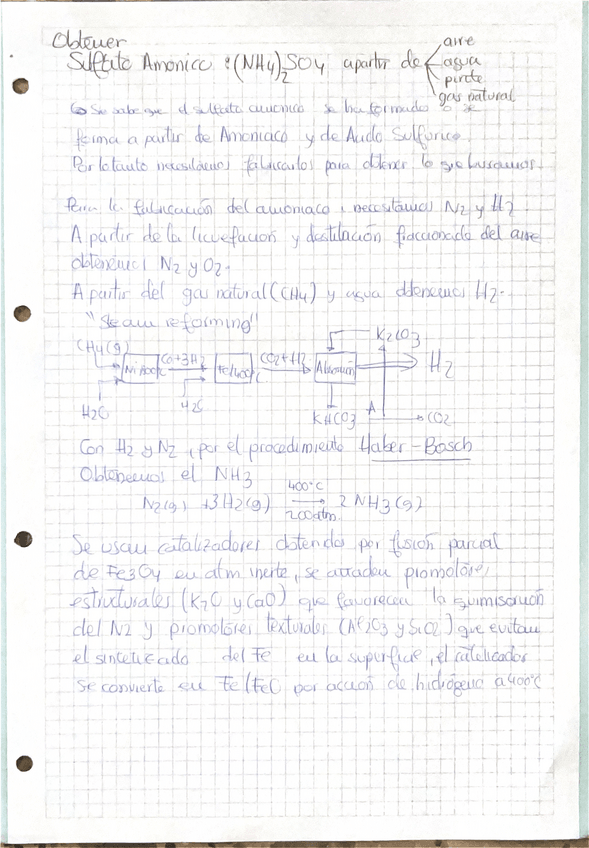 Obtener
Sulfato Amonico : (NH4)2SO4 a partir de
aire
agua
pirita
gas natural
Se sabe que el sulfato amonico se ha formado o se
forma a partir de Amoniaco y de Acido Sulfurico.
Por lo tanto necesitamos fabricarlos para obtener lo que buscamos.
Para la fabricación del amoniaco, necesitamos N2 y H2
A partir de la licuefación y destilación fraccionada del aire
obtenemos N2 y O2.
A partir del gas natural (CH4) y agua obtenemos H2.
"Steam reforming"
CH4(g)
H2O
CO+3H2
H2O
CO2+H2
K2CO3
KHCO3
CO2
H2
Con H2 y N2, por el procedimiento Haber-Bosch
Obtenemos el NH3
N2(g) + 3H2(g) 400ºC 200atm. 2 NH3(g)
Se usan catalizadores obtenidos por fusión parcial
de Fe3O4 en atm inerte, se añaden promotores
estructurales (K2O y CaO) que favorecen la quimisorción
del N2 y promotores texturales (Al2O3 y SiO2) que evitan
el sinterizado del Fe en la superficie, el catalizador
se convierte en Fe/FeO por acción de hidrógeno a 400ºC